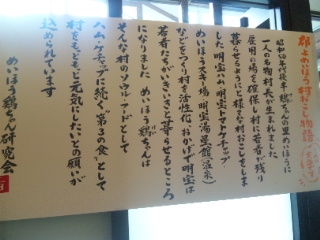 郡上めいほう村おこし物語
昭和四十年後半 鶏ちゃんの里めいほうに
一人の名物村長が生れました
雇用の場を確保し村に若者が残り
暮らせるようにと様々な村おこしをしま
した 明宝ハム 明宝トマトケチャップ
めいほうスキー場 明宝温泉湯星館(温泉)
などをつくり村を活性化 おかげで明宝は
若者たちがいきいきと暮らせるところ
になりました めいほう鶏ちゃんは
そんな村のソウルフードとして
ハム・ケチャップに続く"第3の食"として
村をもっともっと元気にしたいとの願いが
込められています
めいほう鶏ちゃん研究会